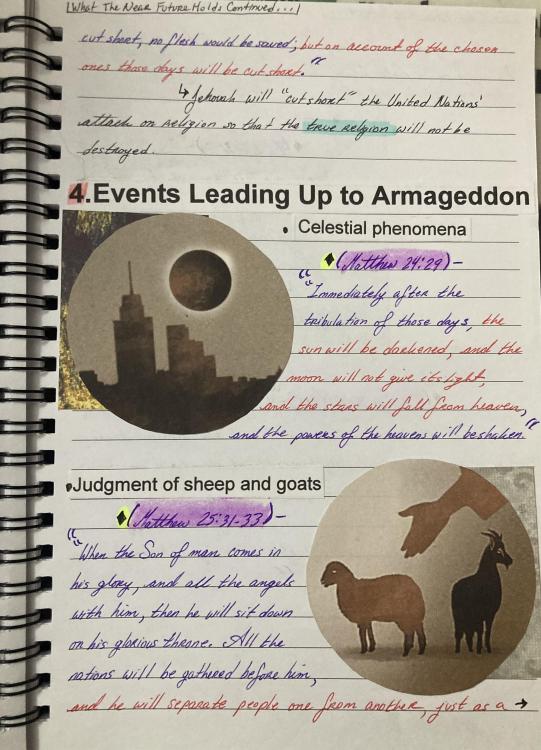 What The Near Future Holds Continued...
cut short, no flesh would be saved; but on account of the chosen
ones those days will be cut short."
↳ Jehovah will "cut short" the United Nations'
attack on religion so that the true religion will not be
destroyed.
4.Events Leading Up to Armageddon
• Celestial phenomena
♦(Matthew 24:29)-
"Immediately after the
tribulation of those days, the
sun will be darkened, and the
moon will not give its light,
and the stars will fall from heaven,
and the powers of the heavens will be shaken."
•Judgment of sheep and goats
♦(Matthew 25:31-33)-
"When the Son of man comes in
his glory, and all the angels
with him, then he will sit down
on his glorious throne. All the
nations will be gathered before him,
and he will separate people one from another, just as a →